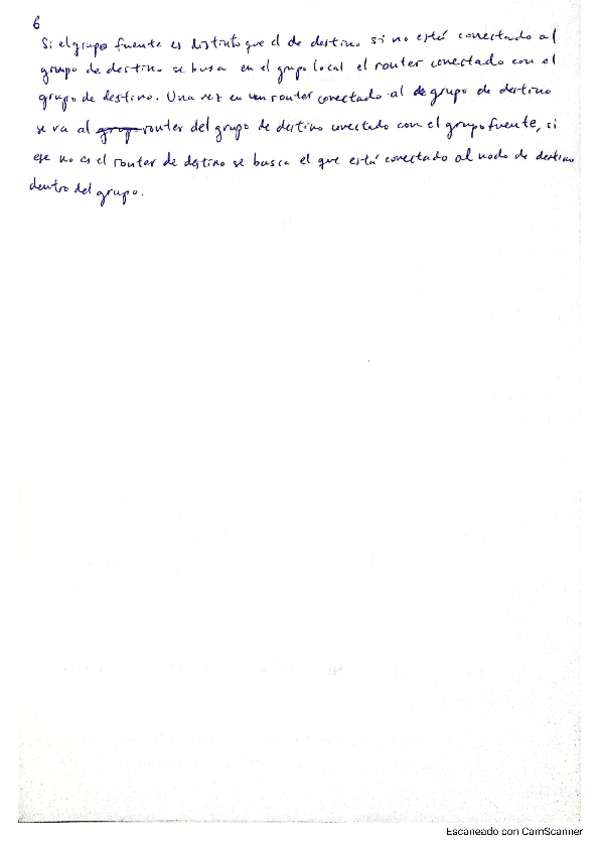 6
Si el grupo fuente es distinto que el de destino si no está conectado al
grupo de destino se busca en el grupo local el router conectado con el
grupo de destino. Una vez en un router conectado al de grupo de destino
se va al grup router del grupo de destino conectado con el grupo fuente, si
ese no es el router de destino se busca el que está conectado al nodo de destino
dentro del grupo.
Escaneado con CamScanner